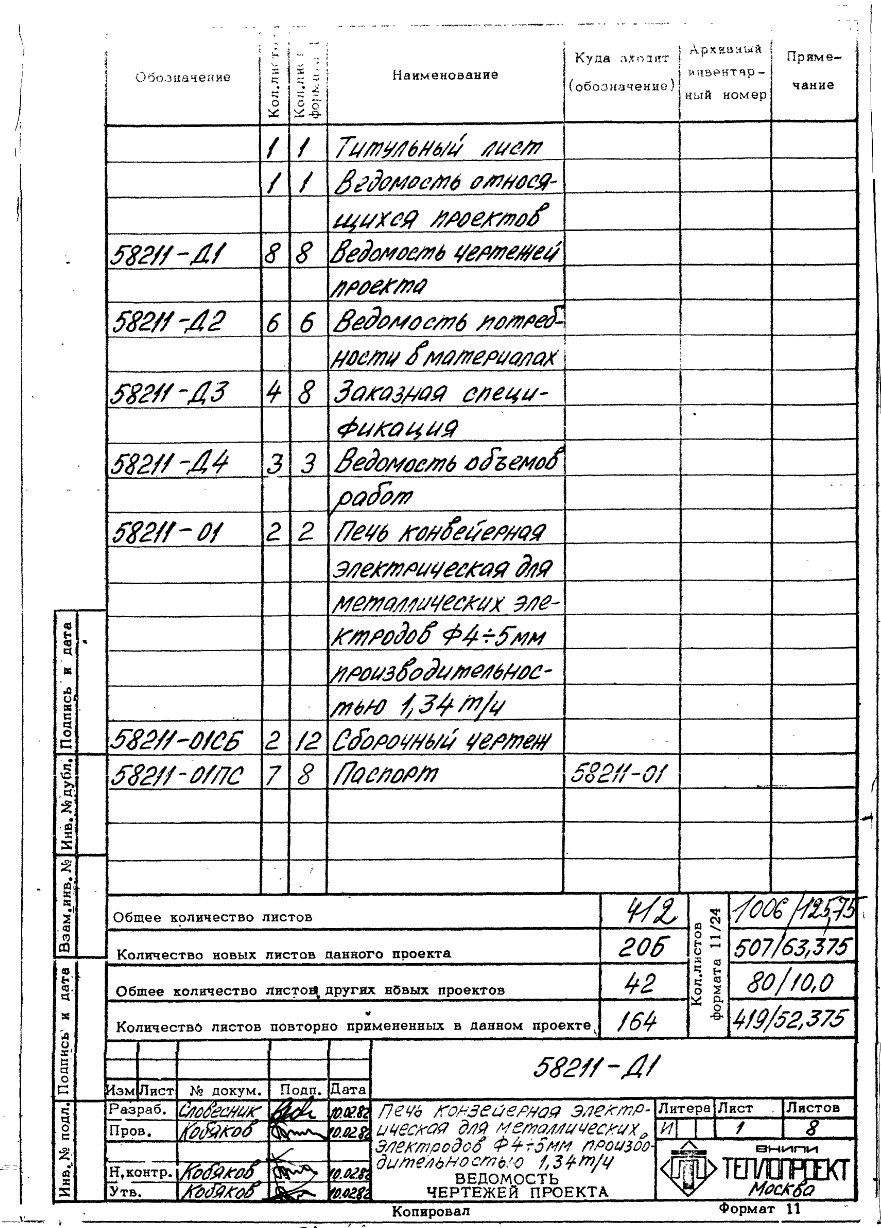 Обозначение Кол.листов Кол.лист формата 1 Наименование Куда входит (обозначение) Архивный инвентар-ный номер Приме-чание
1 1 Титульный лист
1 1 Ведомость относя-
щихся проектов
58211-Д1 8 8 Ведомость чертежей
проекта
58211-Д2 6 6 Ведомость потреб-
ности в материалах
58211-Д3 4 8 Заказная специ-
фикация
58211-Д4 3 3 Ведомость объемов
работ
58211-01 2 2 Печь конвейерная
электрическая для
металлических эле-
ктродов Ф4÷5мм
производительнос-
тью 1,34 т/ч
58211-01СБ 2 12 Сборочный чертеж
58211-01ПС 7 8 Паспорт 58211-01
Общее количество листов 412 1006/125,75
Количество новых листов данного проекта 206 507/63,375
Общее количество листов других новых проектов 42 80/10,0
Количество листов повторно примененных в данном проекте 164 419/52,375
Кол.листов
формата 11/24
Подпись и дата
Инв.№ дубл.
Взам.инв.№
Подпись и дата
Инв.№ подл.
58211-Д1
Изм Лист № докум. Подп. Дата
Разраб. Словесник 10.02.82
Пров. Кобяков 10.02.82
Н.контр. Кобяков 10.02.82
Утв. Кобяков 10.02.82
Печь конвейерная электр-
ическая для металлических
электродов Ф4÷5мм произво-
дительностью 1,34т/ч
ВЕДОМОСТЬ
ЧЕРТЕЖЕЙ ПРОЕКТА
Литера Лист Листов
И 1 8
ВНИПИ
ТЕПЛОПРОЕКТ
Москва
Копировал Формат 11